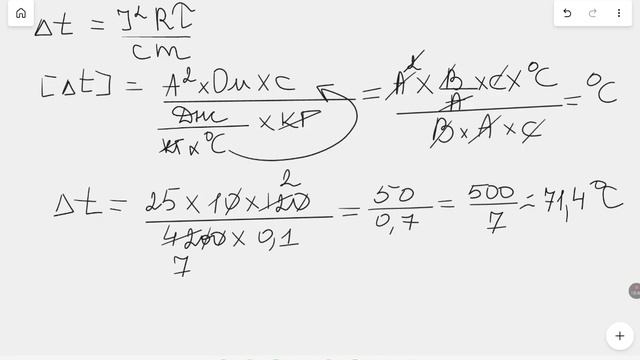 Δt = J²Rτ / cm
[Δt] = A² × Ом × С / (Дж / кг × °C × кг) = A² × B/A × c × °C / B × A × c = °C
Δt = 25 × 10 × 120 2 / 4200 × 0,1 7 = 50 / 0,7 = 500 / 7 = 71,4 °C